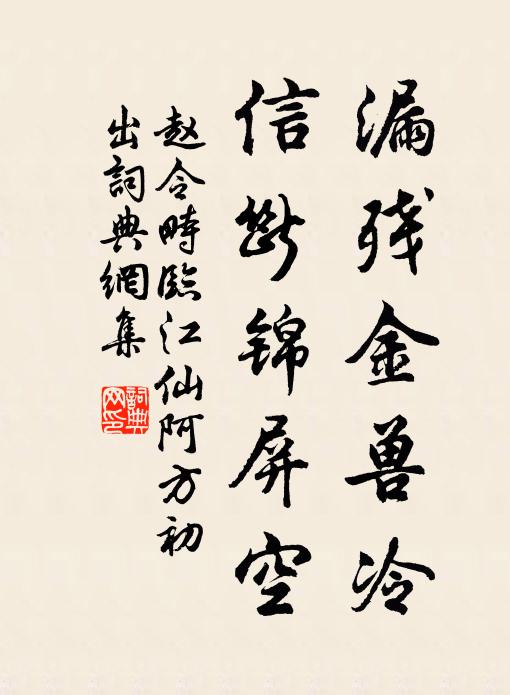 漏残金兽冷
信斷锦屏空
赵令畤臨江仙阿方初
出詞典網集
詞典网印